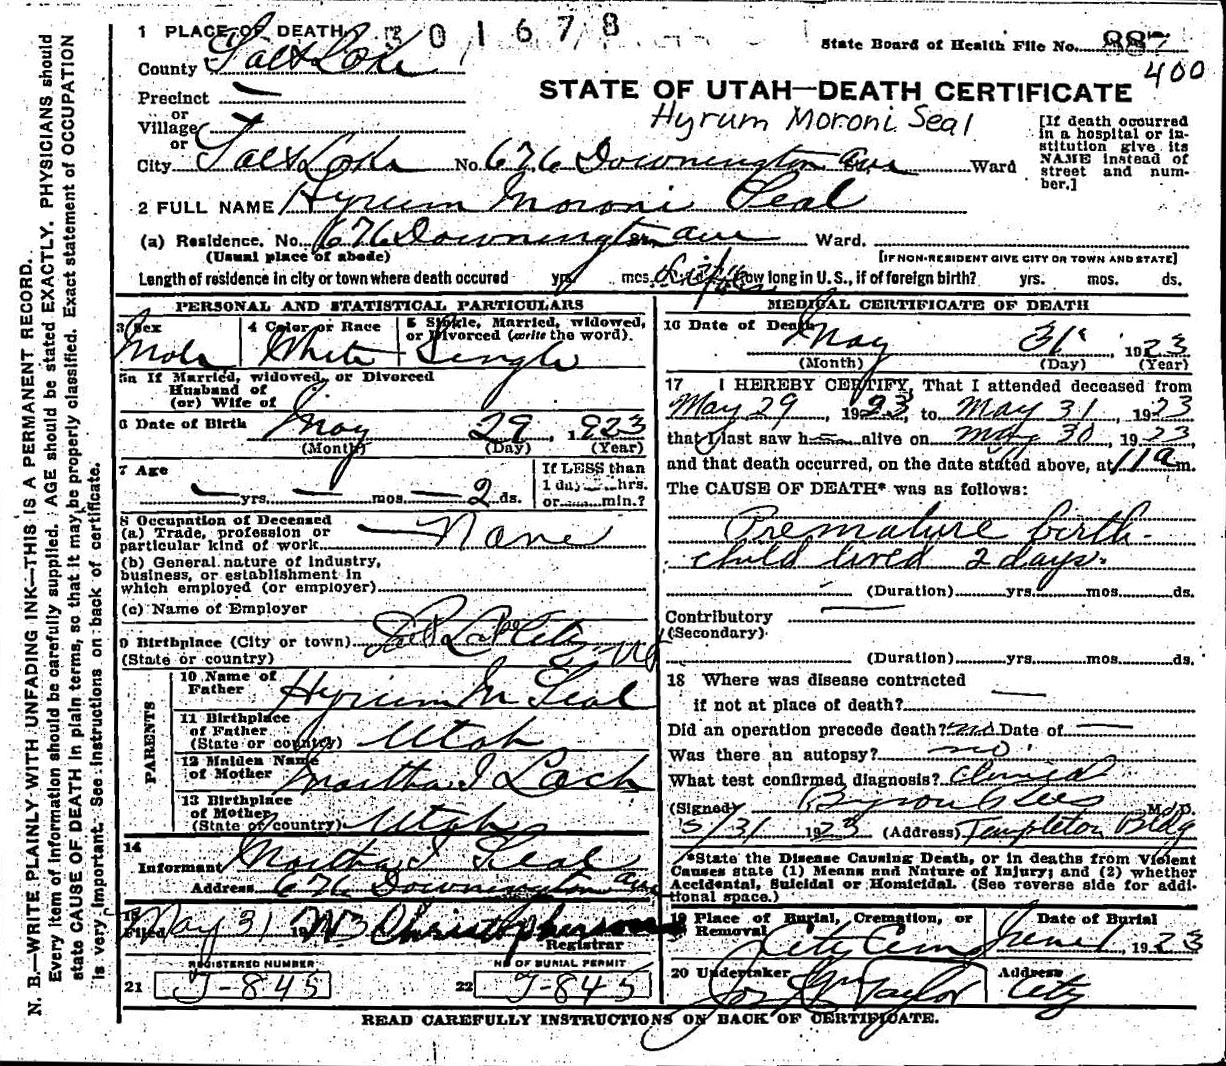 N. B.—WRITE PLAINLY WITH UNFADING INK—THIS IS A PERMANENT RECORD.
Every item of information should be carefully supplied. AGE should be stated EXACTLY. PHYSICIANS should
state CAUSE OF DEATH in plain terms, so that it may be properly classified. Exact statement of OCCUPATION
is very important. See instructions on back of certificate.
1 PLACE OF DEATH 301678
State Board of Health File No. 887
400
County Salt Lake
STATE OF UTAH—DEATH CERTIFICATE
Precinct —
or
Village
or
Hyrum Moroni Seal
[If death occurred
in a hospital or in-
stitution give its
NAME instead of
street and num-
ber.]
City Salt Lake No. 676 Downington Ave Ward
2 FULL NAME Hyrum Moroni Seal
(a) Residence. No. 676 Downington ave Ward.
(Usual place of abode)
[IF NON-RESIDENT GIVE CITY OR TOWN AND STATE]
Length of residence in city or town where death occured yrs. mos. How long in U. S., if of foreign birth? yrs. mos. ds.
PERSONAL AND STATISTICAL PARTICULARS
3 Sex
Male
4 Color or Race
White
5 Single, Married, widowed,
or Divorced (write the word).
Single
5a If Married, widowed, or Divorced
Husband of
(or) Wife of
6 Date of Birth May 29, 1923
(Month) (Day) (Year)
7 Age
— yrs. — mos. — 2 ds.
If LESS than
1 day hrs.
or min.?
8 Occupation of Deceased
(a) Trade, profession or
particular kind of work None
(b) General nature of industry,
business, or establishment in
which employed (or employer)
(c) Name of Employer
9 Birthplace (City or town)
(State or country)
PARENTS
10 Name of
Father Hyrum M Seal
11 Birthplace
of Father
(State or country) Utah
12 Maiden Name
of Mother Martha I Lach
13 Birthplace
of Mother
(State or country) Utah
14
Informant Martha I Seal
Address 676 Downington ave
15
Filed May 31 19 Christopherson
Registrar
REGISTERED NUMBER
21 J-845
No OF BURIAL PERMIT
22 J-845
MEDICAL CERTIFICATE OF DEATH
16 Date of Death
May 31, 1923
(Month) (Day) (Year)
17 I HEREBY CERTIFY, That I attended deceased from
May 29, 1923 to May 31 1923
that I last saw h alive on May 30, 1923,
and that death occurred, on the date stated above, at 11 a m.
The CAUSE OF DEATH* was as follows:
Premature birth.
child lived 2 days.
(Duration) yrs. mos. ds.
Contributory —
(Secondary)
(Duration) yrs. mos. ds.
18 Where was disease contracted
if not at place of death? —
Did an operation precede death? no Date of —
Was there an autopsy? no.
What test confirmed diagnosis? Clinical
(Signed) Byron Rees M. D.
5/31 1923 (Address) Templeton Bldg
*State the Disease Causing Death, or in deaths from Violent
Causes state (1) Means and Nature of Injury; and (2) whether
Accidental, Suicidal or Homicidal. (See reverse side for addi-
tional space.)
19 Place of Burial, Cremation, or
Removal
City Cem
Date of Burial
June 1, 1923
20 Undertaker
Jos Wm Taylor
Address
City
READ CAREFULLY INSTRUCTIONS ON BACK OF CERTIFICATE.